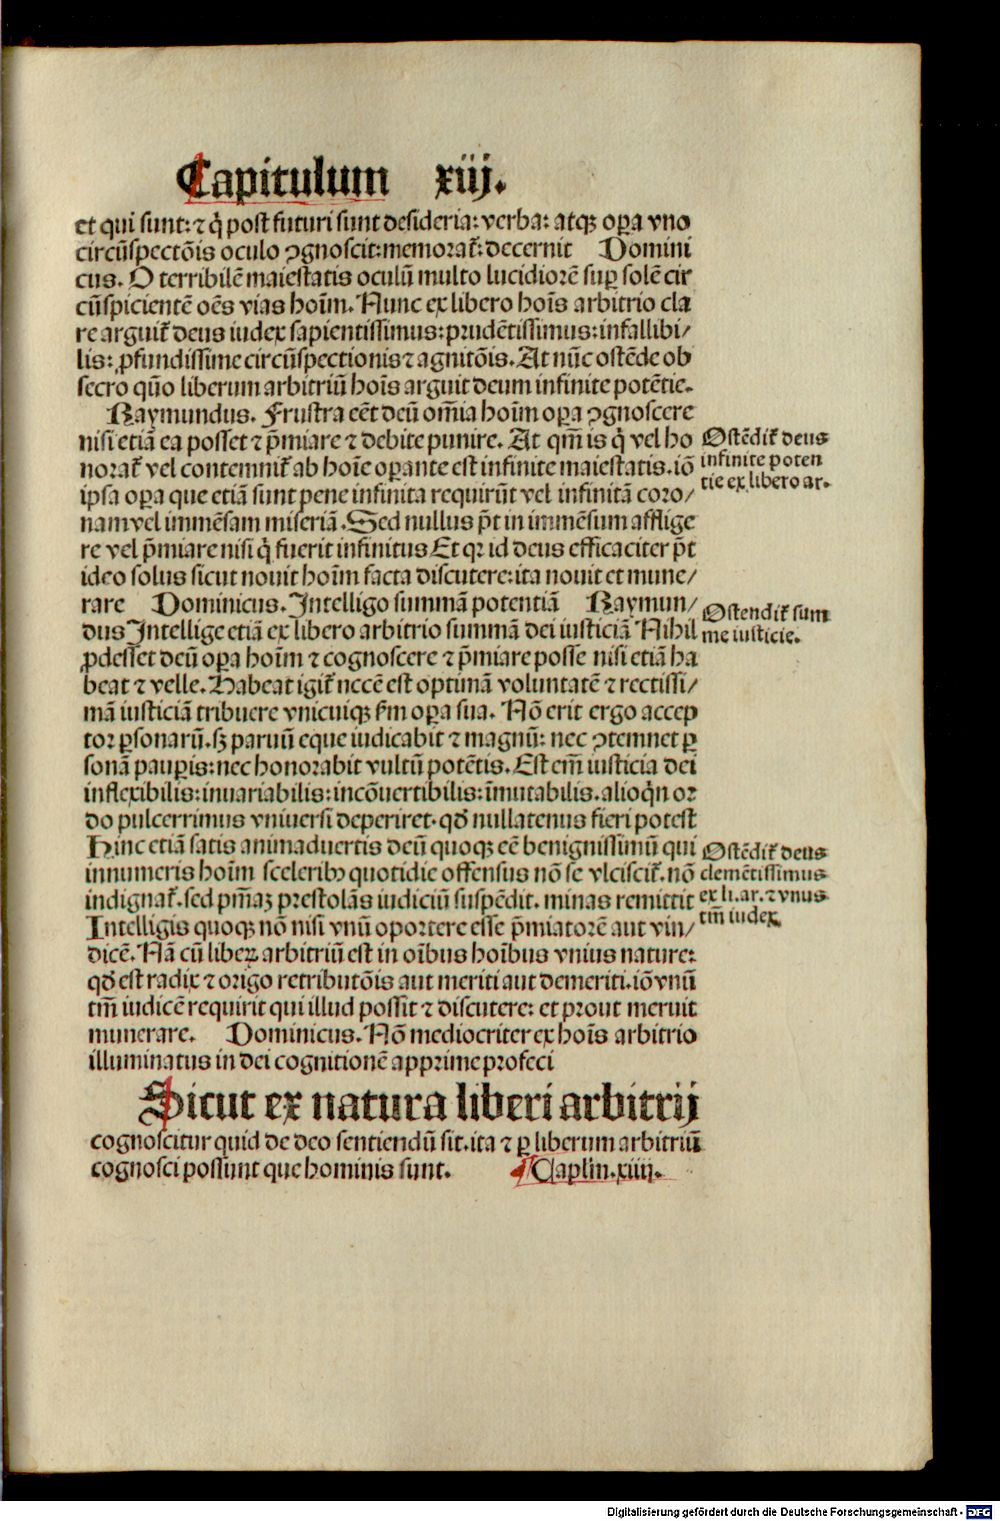 Capitulum xiij.
et qui sunt: ⁊ q̇ post futuri sunt desideria: verba: atqꝫ oꝑa vno
circūspectōis oculo ꝯgnoscit: memorat᷑: decernit Domini
cus. O terribilē maiestatis oculū multo lucidiorē suꝑ solē cir
cūspicientē oēs vias hoīm. Nunc ex libero hoīs arbitrio cla
re arguit᷑ deus iudex sapientissimus: prudētissimus: infallibi/
lis: ꝓfundissime circūspectionis ⁊ agnitōis. At nūc ostēde ob
secro quō liberum arbitriū hoīs arguit deum infinite potētie.
Raymundus. Frustra eēt deū om̄ia hoīm oꝑa ꝯgnoscere
nisi etiā ea posset ⁊ p̄miare ⁊ debite punire. At qm̄ is q̇ vel ho
norat᷑ vel contemnit᷑ ab hoīe oꝑante est infinite maiestatis. iō
ipsa oꝑa que etiā sunt pene infinita requirūt vel infinitā coro/
nam vel immēsam miseriā. Sed nullus pōt in immēsum afflige
re vel p̄miare nisi q̇ fuerit infinitus Et qꝛ id deus efficaciter pōt
ideo solus sicut nouit hoīm facta discutere: ita nouit et mune/
rare Dominicus. Intelligo summā potentiā Raymun/
dus Intellige etiā ex libero arbitrio summā dei iusticiā Nihil
ꝓdesset deū oꝑa hoīm ⁊ cognoscere ⁊ p̄miare posse nisi etiā ha
beat ⁊ velle. Habeat igit᷑ necē est optimā voluntatē ⁊ rectissi/
mā iusticiā tribuere vnicuiqꝫ ẜm oꝑa sua. Nō erit ergo accep
tor ꝑsonarū. sꝫ paruū eque iudicabit ⁊ magnū: nec ꝯtemnet ꝑ
sonā pauꝑis: nec honorabit vultū potētis. Est em̄ iusticia dei
inflexibilis: inuariabilis: incōuertibilis: īmutabilis. alioq̇n or
do pulcerrimus vniuersi deperiret. qđ nullatenus fieri potest
Hinc etiā satis animaduertis deū quoqꝫ eē benignissimū qui
innumeris hoīm sceleribꝫ quotidie offensus nō se vlciscit᷑. nō
indignat᷑. sed pm̄aꝫ prestolās iudiciū suspēdit. minas remittit
Intelligis quoqꝫ nō nisi vnū oportere esse p̄miatorē aut vin/
dicē. Nā cū libeꝝ arbitriū est in oībus hoībus vnius nature:
qđ est radix ⁊ origo retributōis aut meriti aut demeriti. iō vnū
tm̄ iudicē requirit qui illud possit ⁊ discutere: et prout meruit
munerare. Dominicus. Nō mediocriter ex hoīs arbitrio
illuminatus in dei cognitionē apprime profeci
Ostēdit᷑ deus
infinite poten
tie ex libero ar.
Ostendit᷑ sum
me iusticie.
Ostēdit᷑ deus
clemētissimus
ex li. ar. ⁊ vnus
tm̄ iudex.
Sicut ex natura liberi arbitrij
cognoscitur quid de deo sentiendū sit. ita ⁊ ꝑ liberum arbitriū
cognosci possunt que hominis sunt. ¶ Caplm̄. xiiij.
Digitalisierung gefördert durch die Deutsche Forschungsgemeinschaft - DFG